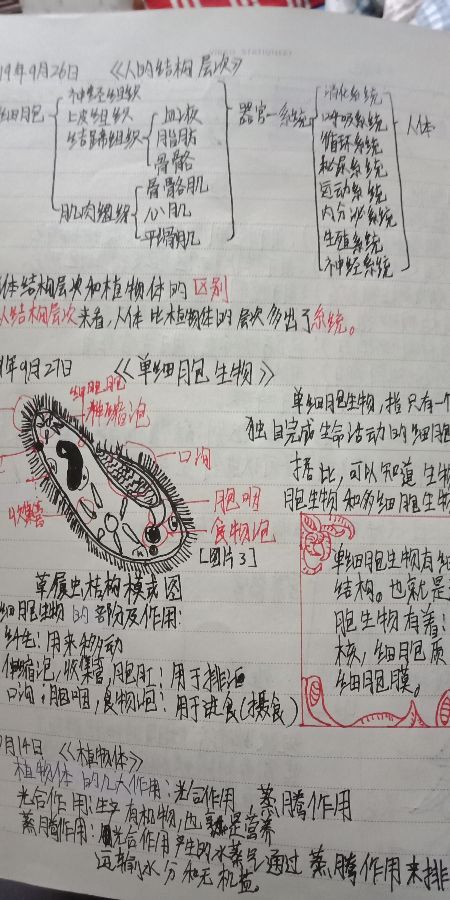 19年9月26日 《人的结构层次》
细胞
神经组织
上皮组织
结缔组织
血小板
脂肪
骨骼
肌肉组织
骨骼肌
心肌
平滑肌
器官—系统
消化系统
呼吸系统
循环系统
泌尿系统
运动系统
内分泌系统
生殖系统
神经系统
人体
体结构层次和植物体的区别
从结构层次来看,人体比植物体的层次多出了系统。
年9月27日 《单细胞生物》
单细胞生物,指只有一个
独自完成生命活动的细胞
据此,可以知道生物
胞生物和多细胞生物
伸缩泡
口沟
胞咽
食物泡
收集管
[图片3]
草履虫结构模式图
单细胞生物有细
结构。也就是
胞生物有着:
核,细胞质
细胞膜。
细胞生物的部分及作用:
纤毛:用来移动
伸缩泡,收集管,胞肛:用于排泄
口沟,胞咽,食物泡:用于进食(摄食)
月14日 《植物体》
植物体的几大作用:光合作用,蒸腾作用
光合作用:生产有机物,也就是营养
蒸腾作用:光合作用产生的水蒸气通过蒸腾作用来排
运输水分和无机盐。